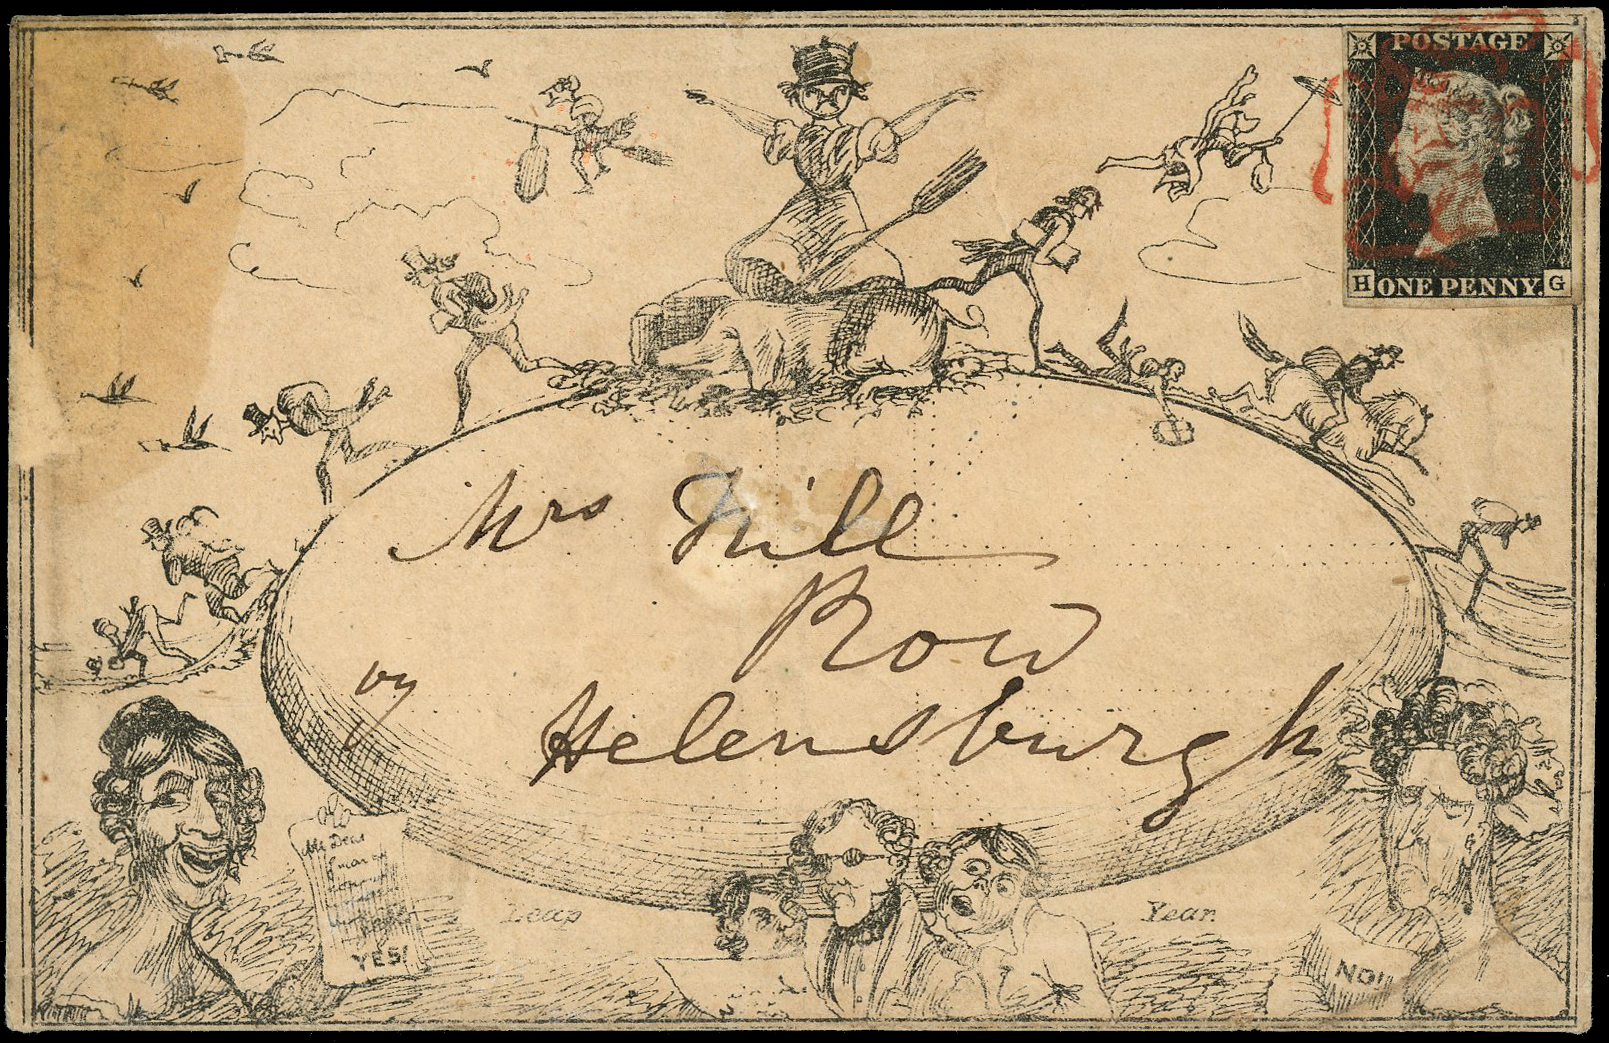 POSTAGE
H ONE PENNY. G
Mrs Hill
Row
by Helensburgh
My Dear
YES!
Leap Year
NO!!